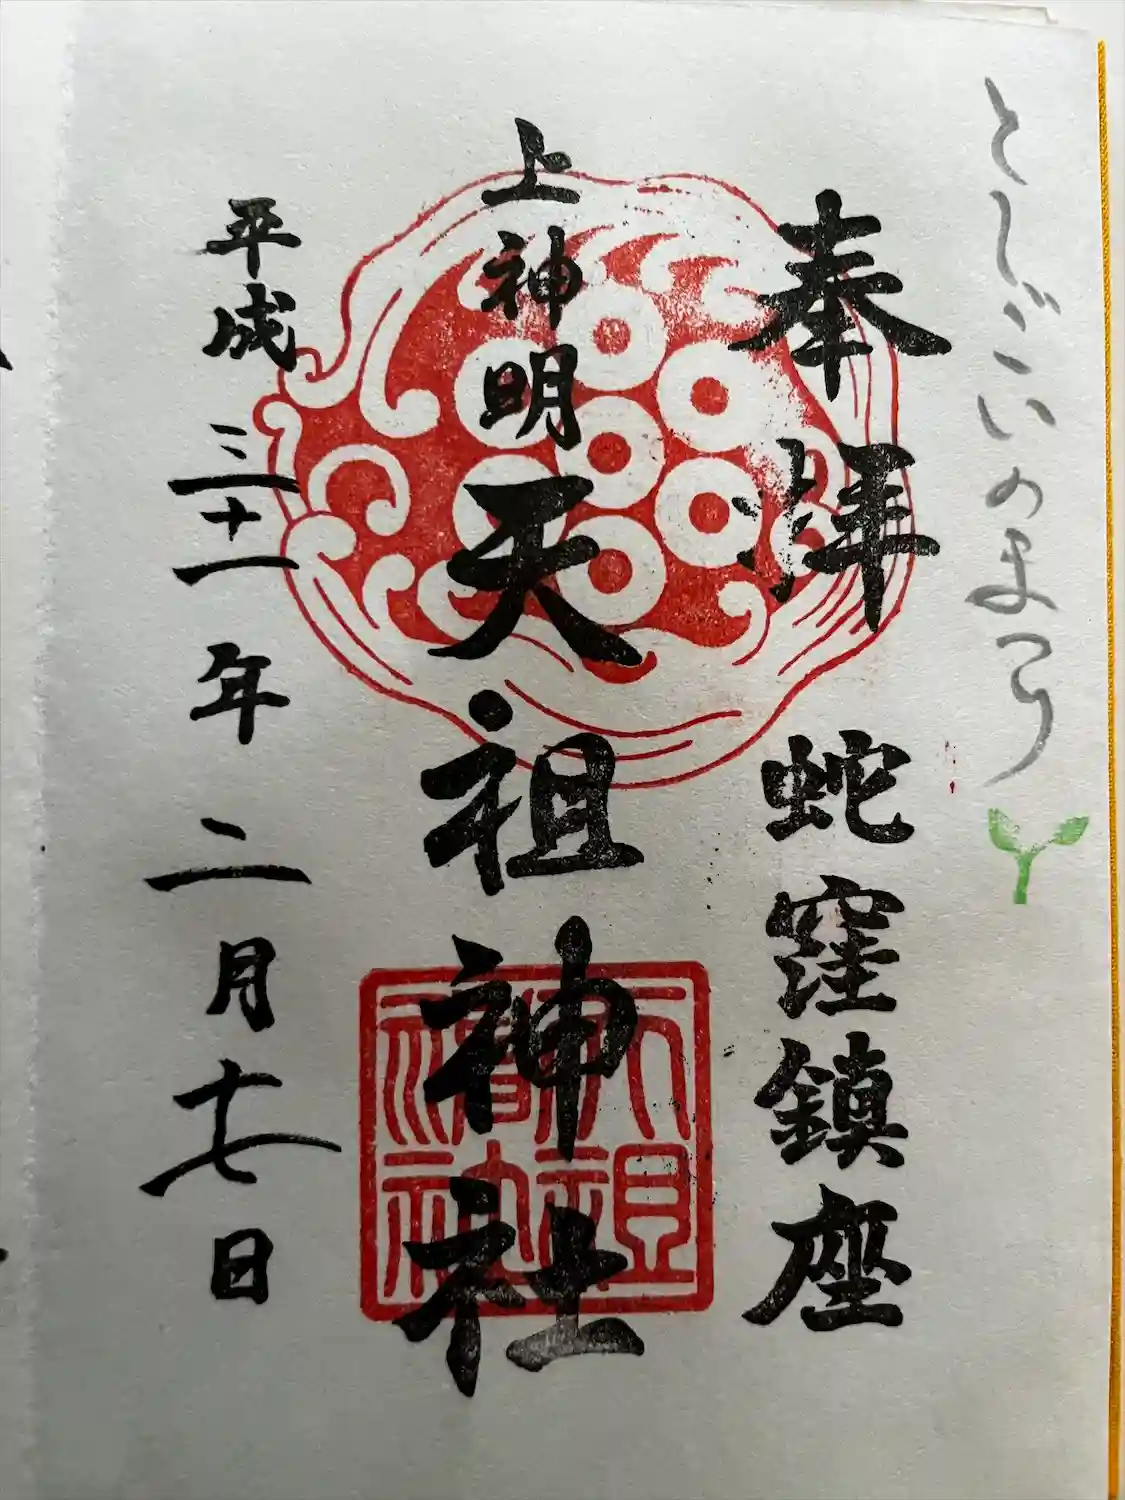 としごいのまつり
奉拝 蛇窪鎮座
上神明天祖神社
平成三十一年二月十七日